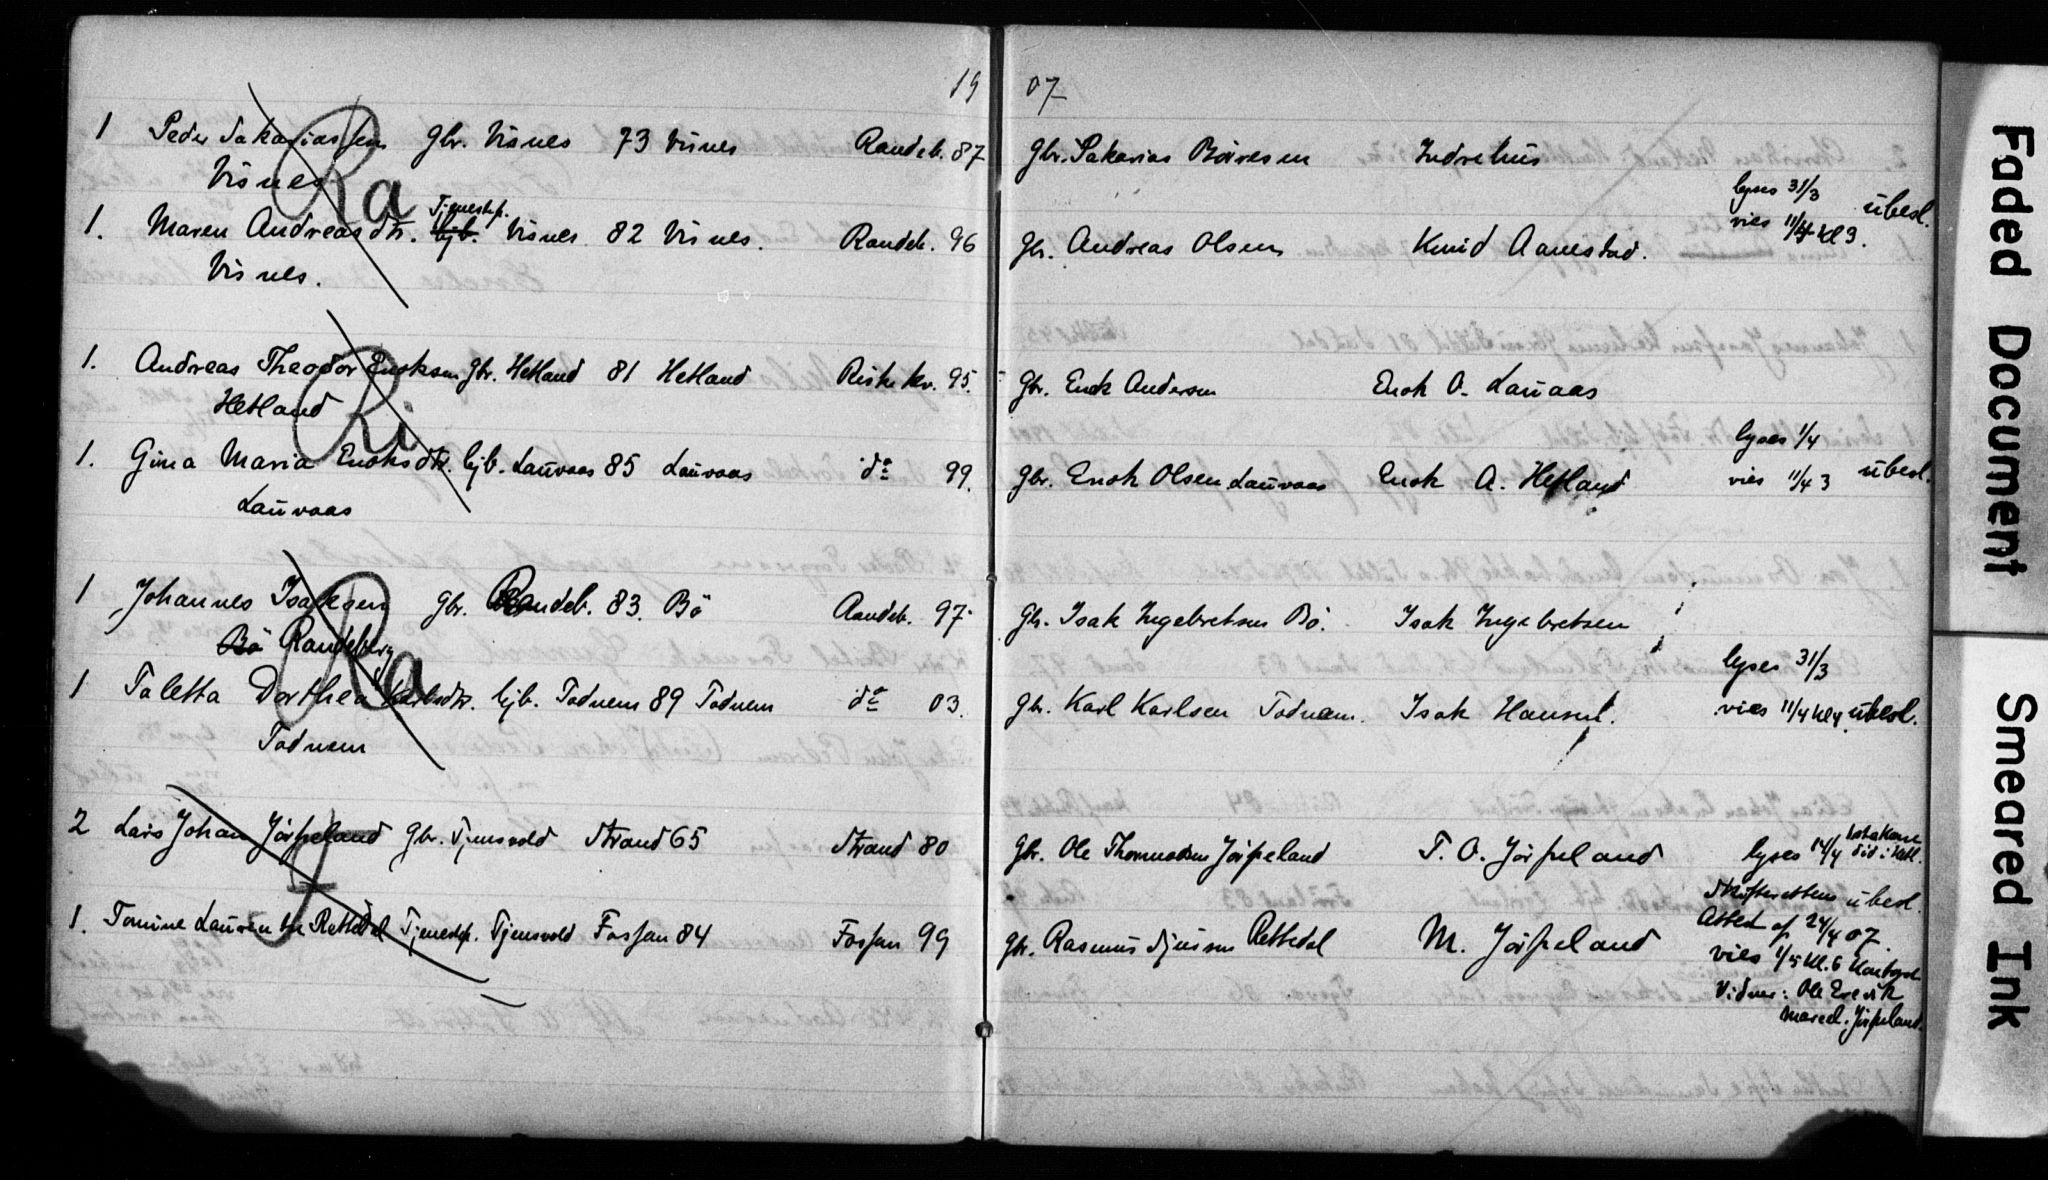 19 07
1 Peder Sakariassen Gbr. Visnes 73 Visnes Randeb. 87 Gbr. Sakarias Indrehus
Visnes Ra
lyses 31/3 übesl.
Tjenestep.
1. Maren Andreasdtr. hjb. Visnes 82 Visnes. Randeb. 96 Gbr. Andreas Olsen Knud Aanestad. vies 11/4 kl 3.
Visnes.
1. Andreas Theodor Enoksen Gbr. Hetland 81 Hetland Riske kv. 95. Gbr. Enok Andersen Enok O. Lauvaas
Hetland Ri
lyses 1/4
1. Gina Maria Enoksdtr. hjb. Lauvaas 85 Lauvaas do 99. Gbr. Enok Olsen Lauvaas Enok A. Hetland vies 11/4 3 übesl.
Lauvaas
1 Johannes Isaksen Gbr. Randeb. 83. Bö Randeb. 97. Gbr. Isak Ingebretsen Bö. Isak Ingebretsen
Bö Randeberg Ra
lyses 31/3
1 Taletta Dorthea Karlsdtr. hjb. Todnem 89 Todnem do 03. Gbr. Karl Karlsen Todnem. Isak Hansen. vies 11/4 kl 4 übesl.
Todnem
2 Lars Johan Jörpeland Gbr. Tjensvold Strand 65 Strand 80 Gbr. Ole Thormodsen Jörpeland T. O. Jörpeland lyses 14/4
Skifterettens übesl.
Attest af 24/4 07.
1. Tomine Laurentse Rettedal Tjenestep. Tjensvold Fossan 84 Fossan 99 Gbr. Rasmus Rettedal M. Jörpeland vies 1/5 kl. 6
Vidner: Ole Erevik
Jörpeland.
Faded Document
Smeared Ink